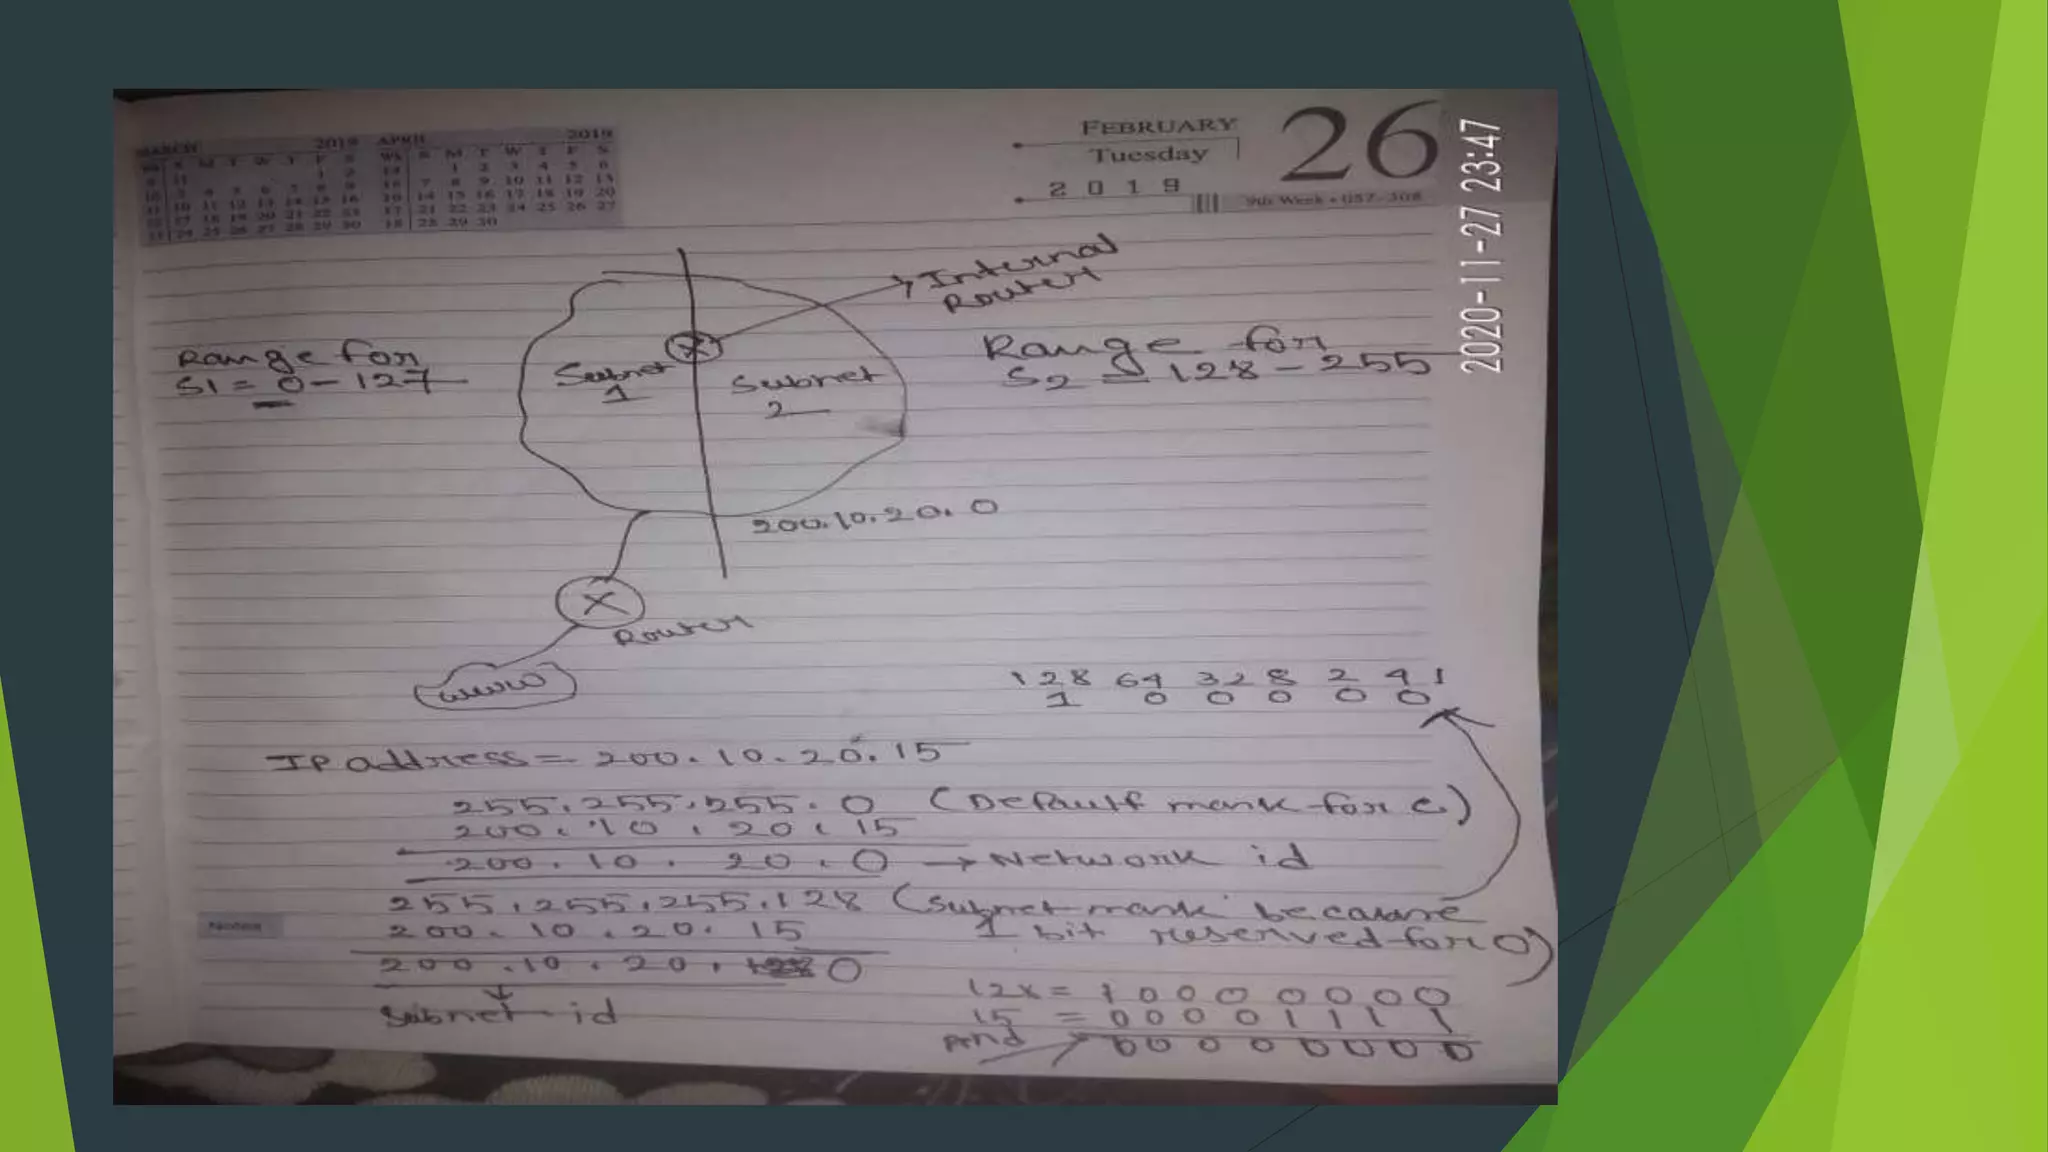 MARCH 2019 APRIL 2019
FEBRUARY
Tuesday
2 0 1 9
26
9th Week • 057-308
2020-11-27 23:47
Internal
Router
Range for
S1 = 0-127
Subnet
1
Subnet
2
Range for
S2 = 128-255
200.10.20.0
Router
www
128 64 32 8 2 4 1
1 0 0 0 0 0
IP address = 200.10.20.15
255.255.255.0 (Default mask for c)
200.10.20.15
200.10.20.0 → Network id
255.255.255.128 (subnet mask because
1 bit reserved for 0)
200.10.20.15
200.10.20.0
Subnet id
128 = 1 0 0 0 0 0 0 0
15 = 0 0 0 0 1 1 1 1
And
0 0 0 0 0 0 0 0
Notes